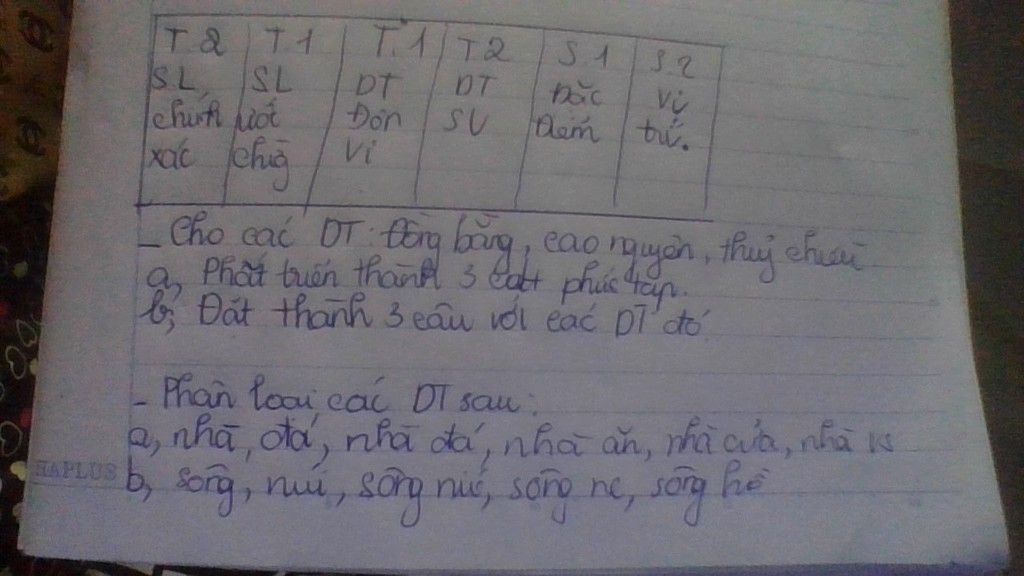 T2 T1 T.1 T2 S1 S2
SL SL DT DT Đặc Vị
chính ước Đơn SV điểm trí.
xác chừng Vị
- Cho các DT: Đồng bằng, cao nguyên, thuỷ
a, Phát triển thành 3 phức tạp.
b, Đặt thành 3 câu với các DT đó
- Phân loại các DT sau:
a, nhà, đá, nhà đá, nhà ăn, nhà cửa, nhà
HAPLUS b, sông, núi, sông núi, sông hồ